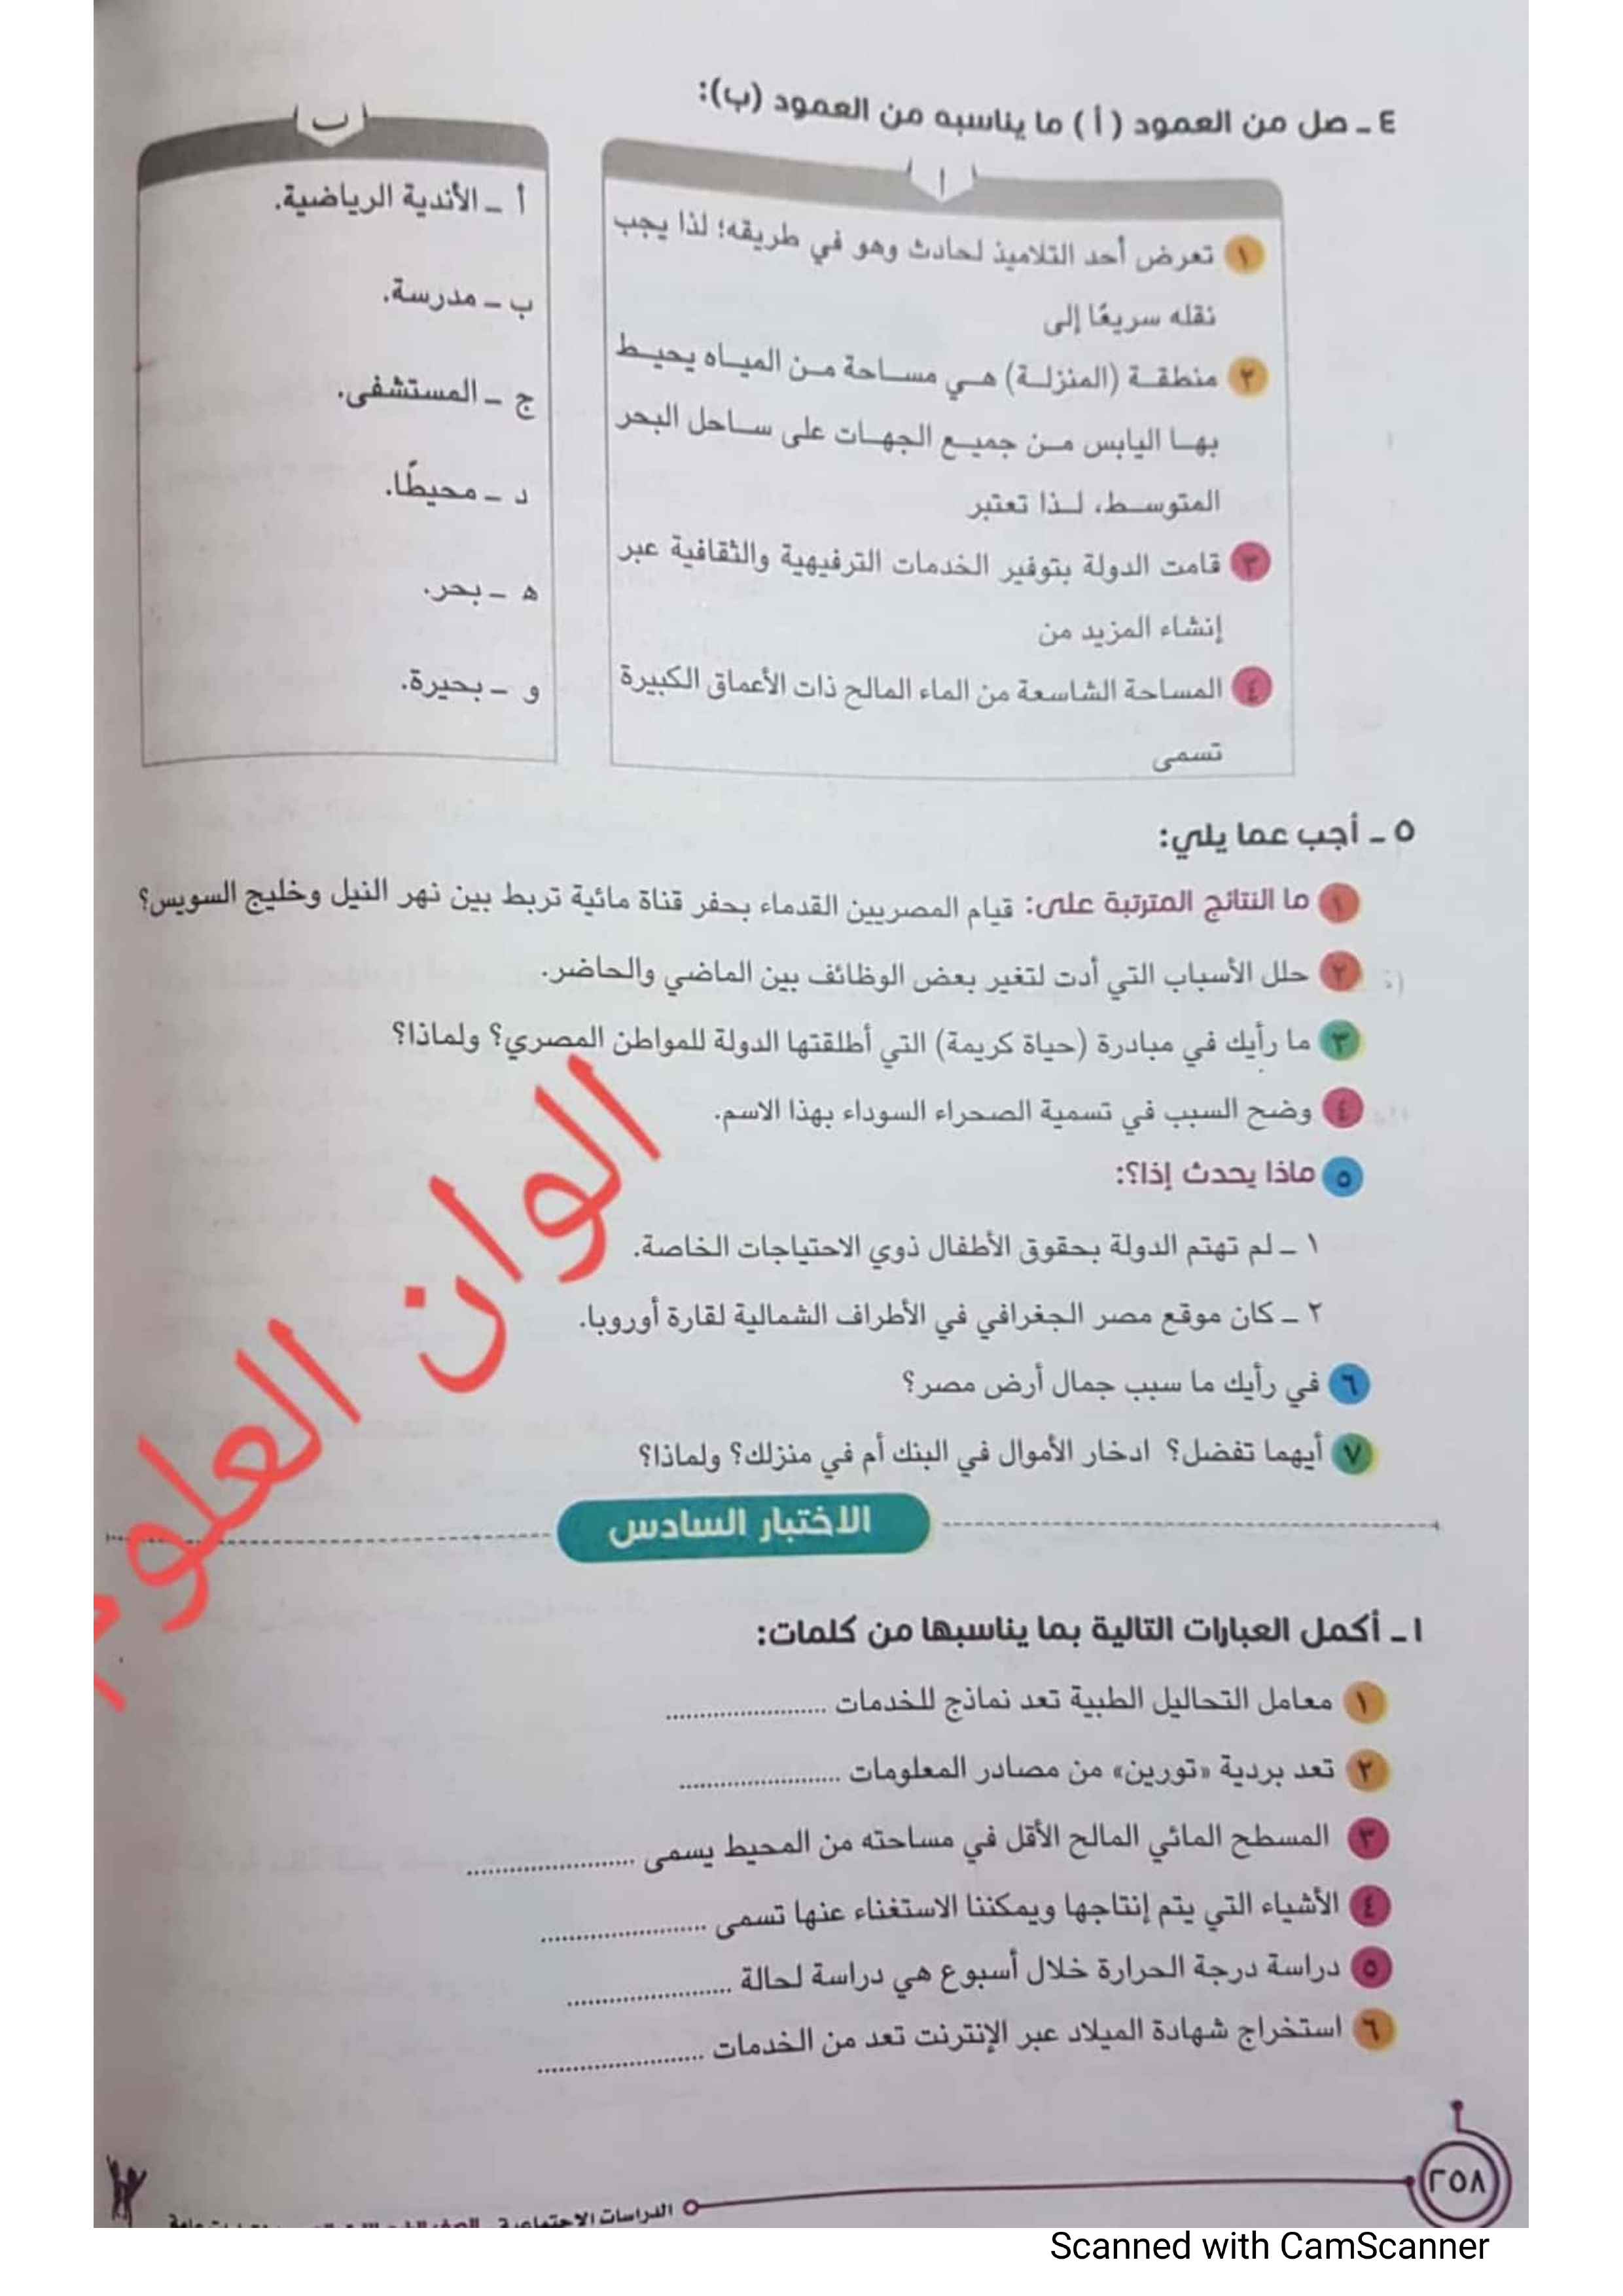 ٤ ـ صل من العمود ( أ ) ما يناسبه من العمود (ب):
أ
١ تعرض أحد التلاميذ لحادث وهو في طريقه؛ لذا يجب
نقله سريعًا إلى
٢ منطقة (المنزلة) هي مساحة من المياه يحيط
بها اليابس من جميع الجهات على ساحل البحر
المتوسط، لذا تعتبر
٣ قامت الدولة بتوفير الخدمات الترفيهية والثقافية عبر
إنشاء المزيد من
٤ المساحة الشاسعة من الماء المالح ذات الأعماق الكبيرة
تسمى
ب
أ ـ الأندية الرياضية.
ب ـ مدرسة.
ج ـ المستشفى.
د ـ محيطًا.
ه ـ بحر.
و ـ بحيرة.
٥ ـ أجب عما يلي:
١ ما النتائج المترتبة على: قيام المصريين القدماء بحفر قناة مائية تربط بين نهر النيل وخليج السويس؟
٢ حلل الأسباب التي أدت لتغير بعض الوظائف بين الماضي والحاضر.
٣ ما رأيك في مبادرة (حياة كريمة) التي أطلقتها الدولة للمواطن المصري؟ ولماذا؟
٤ وضح السبب في تسمية الصحراء السوداء بهذا الاسم.
٥ ماذا يحدث إذا؟:
١ ـ لم تهتم الدولة بحقوق الأطفال ذوي الاحتياجات الخاصة.
٢ ـ كان موقع مصر الجغرافي في الأطراف الشمالية لقارة أوروبا.
٦ في رأيك ما سبب جمال أرض مصر؟
٧ أيهما تفضل؟ ادخار الأموال في البنك أم في منزلك؟ ولماذا؟
الوان العلوم
الاختبار السادس
١ ـ أكمل العبارات التالية بما يناسبها من كلمات:
١ معامل التحاليل الطبية تعد نماذج للخدمات ........................
٢ تعد بردية «تورين» من مصادر المعلومات ........................
٣ المسطح المائي المالح الأقل في مساحته من المحيط يسمى ........................
٤ الأشياء التي يتم إنتاجها ويمكننا الاستغناء عنها تسمى ........................
٥ دراسة درجة الحرارة خلال أسبوع هي دراسة لحالة ........................
٦ استخراج شهادة الميلاد عبر الإنترنت تعد من الخدمات ........................
٢٥٨
الدراسات الاجتماعية
Scanned with CamScanner